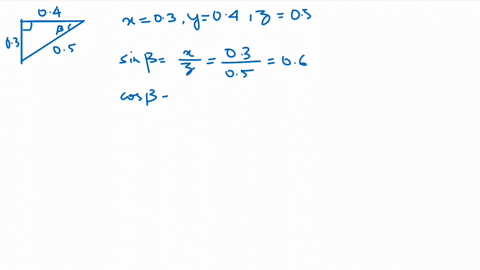 0.4
x = 0.3, y = 0.4, z = 0.5
0.3
β
0.5
sin β = x/z = 0.3/0.5 = 0.6
cos β -